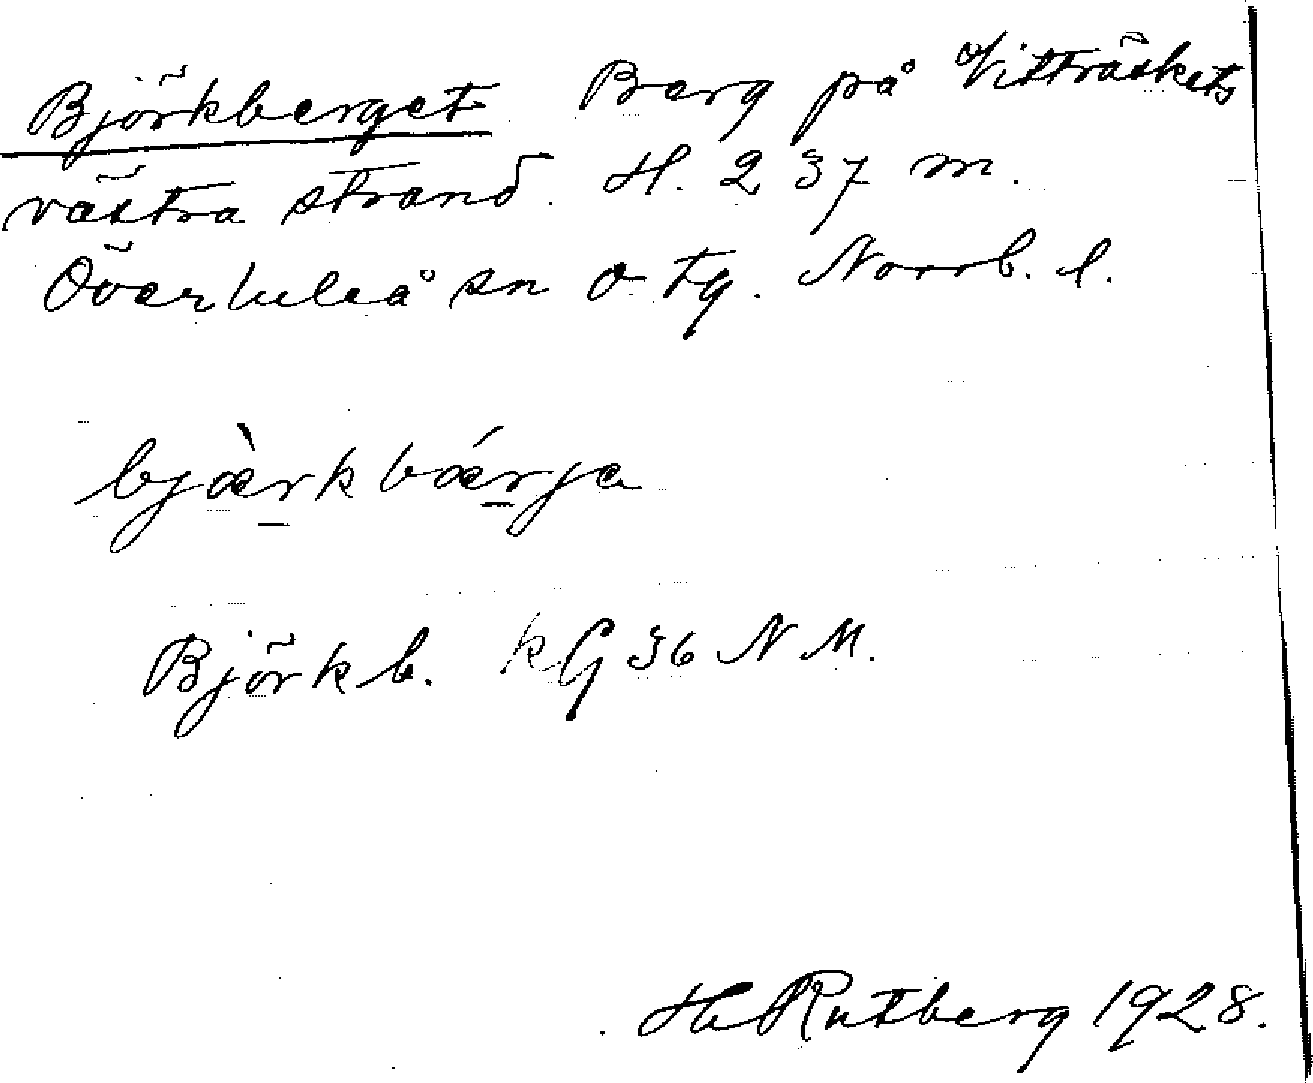 Björkberget Berg på Vitträskets
västra strand. H. 237 m.
Överluleå sn o tg. Norrb. l.
bjærkbærja
Björkb. kG 36 N M.
H Rutberg 1928.